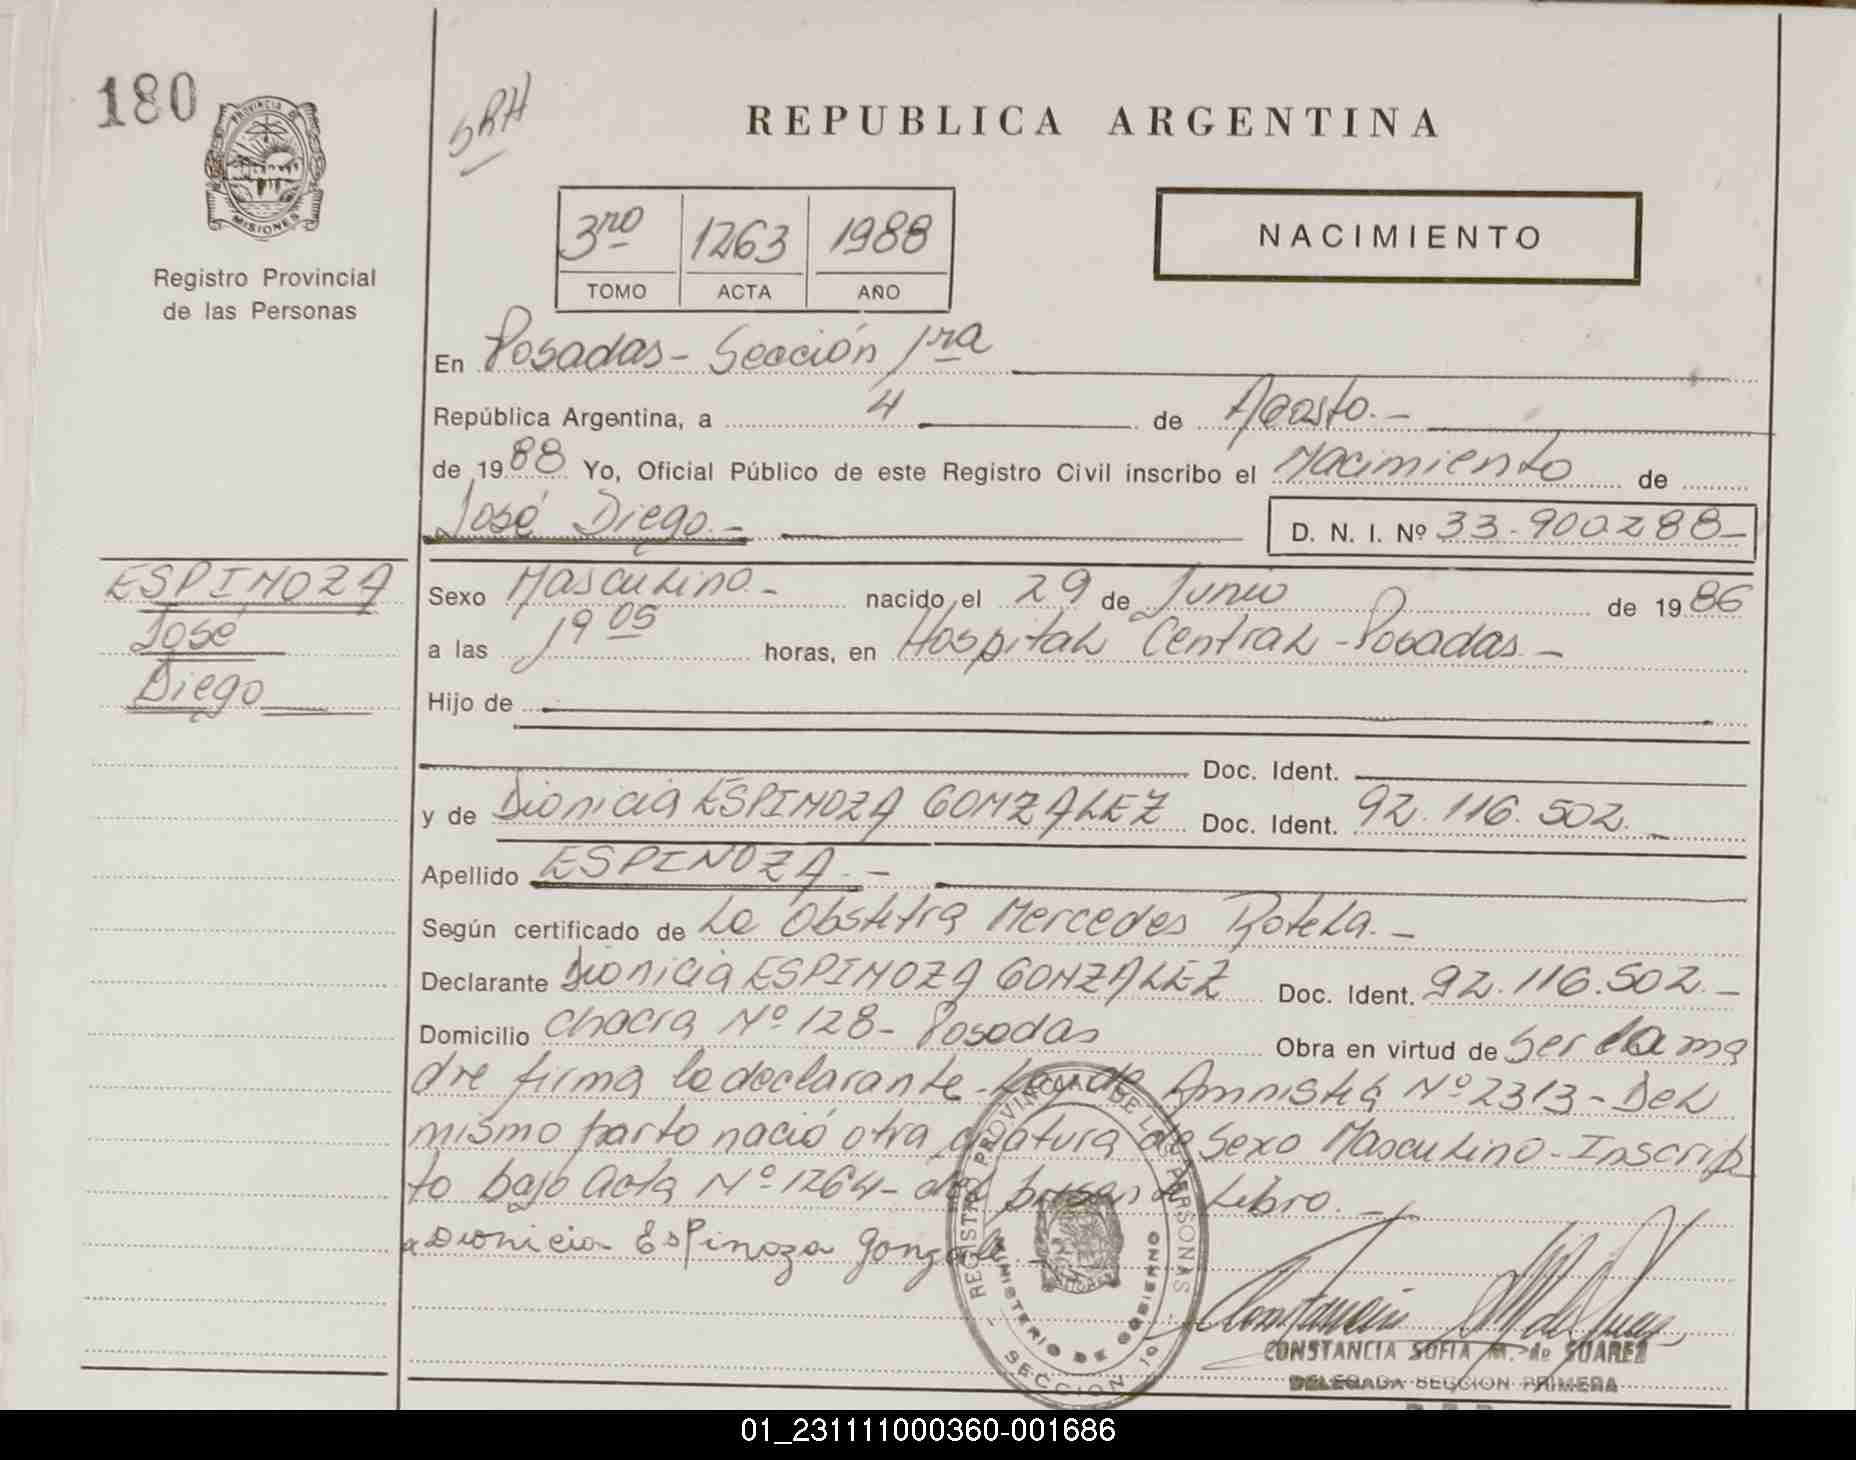 180
PROVINCIA DE
MISIONES
Registro Provincial
de las Personas
SRH
REPUBLICA ARGENTINA
3ro 1263 1988
TOMO ACTA AÑO
NACIMIENTO
En Posadas - Sección 1ra
República Argentina, a 4 de Agosto. -
de 1988 Yo, Oficial Público de este Registro Civil inscribo el Nacimiento de
José Diego. -
D. N. I. Nº 33.900288-
ESPINOZA
José
Diego
Sexo Masculino. - nacido el 29 de Junio de 1986
a las 19 05 horas, en Hospital Central - Posadas. -
Hijo de
Doc. Ident.
y de Dionicia ESPINOZA GONZALEZ Doc. Ident. 92.116.502. -
Apellido ESPINOZA. -
Según certificado de La Obstetra Mercedes Rotela. -
Declarante Dionicia ESPINOZA GONZALEZ Doc. Ident. 92.116.502. -
Domicilio Chacra Nº 128 - Posadas Obra en virtud de ser la ma
dre firma la declarante - Ley de Amnistía Nº 2313 - Del
mismo parto nació otra criatura de Sexo Masculino - Inscrip
to bajo Acta Nº 1264 - del presente Libro. -
Dionicia Espinoza Gonzale
REGISTRO PROVINCIAL DE LAS PERSONAS
MINISTERIO DE GOBIERNO
SECCION 1º
CONSTANCIA SOFIA M. de SUAREZ
DELEGADA SECCION PRIMERA
01_231111000360-001686